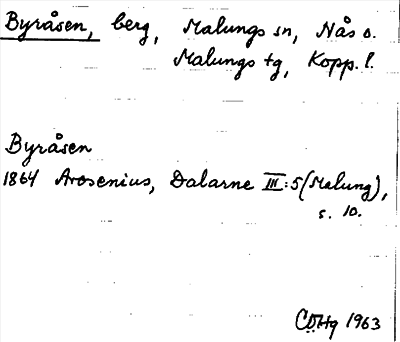 Byråsen, berg, Malungs sn, Nås o.
Malungs tg, Kopp. l.
Byråsen
1864 Arosenius, Dalarne III:5 (Malung),
s. 10.
1963